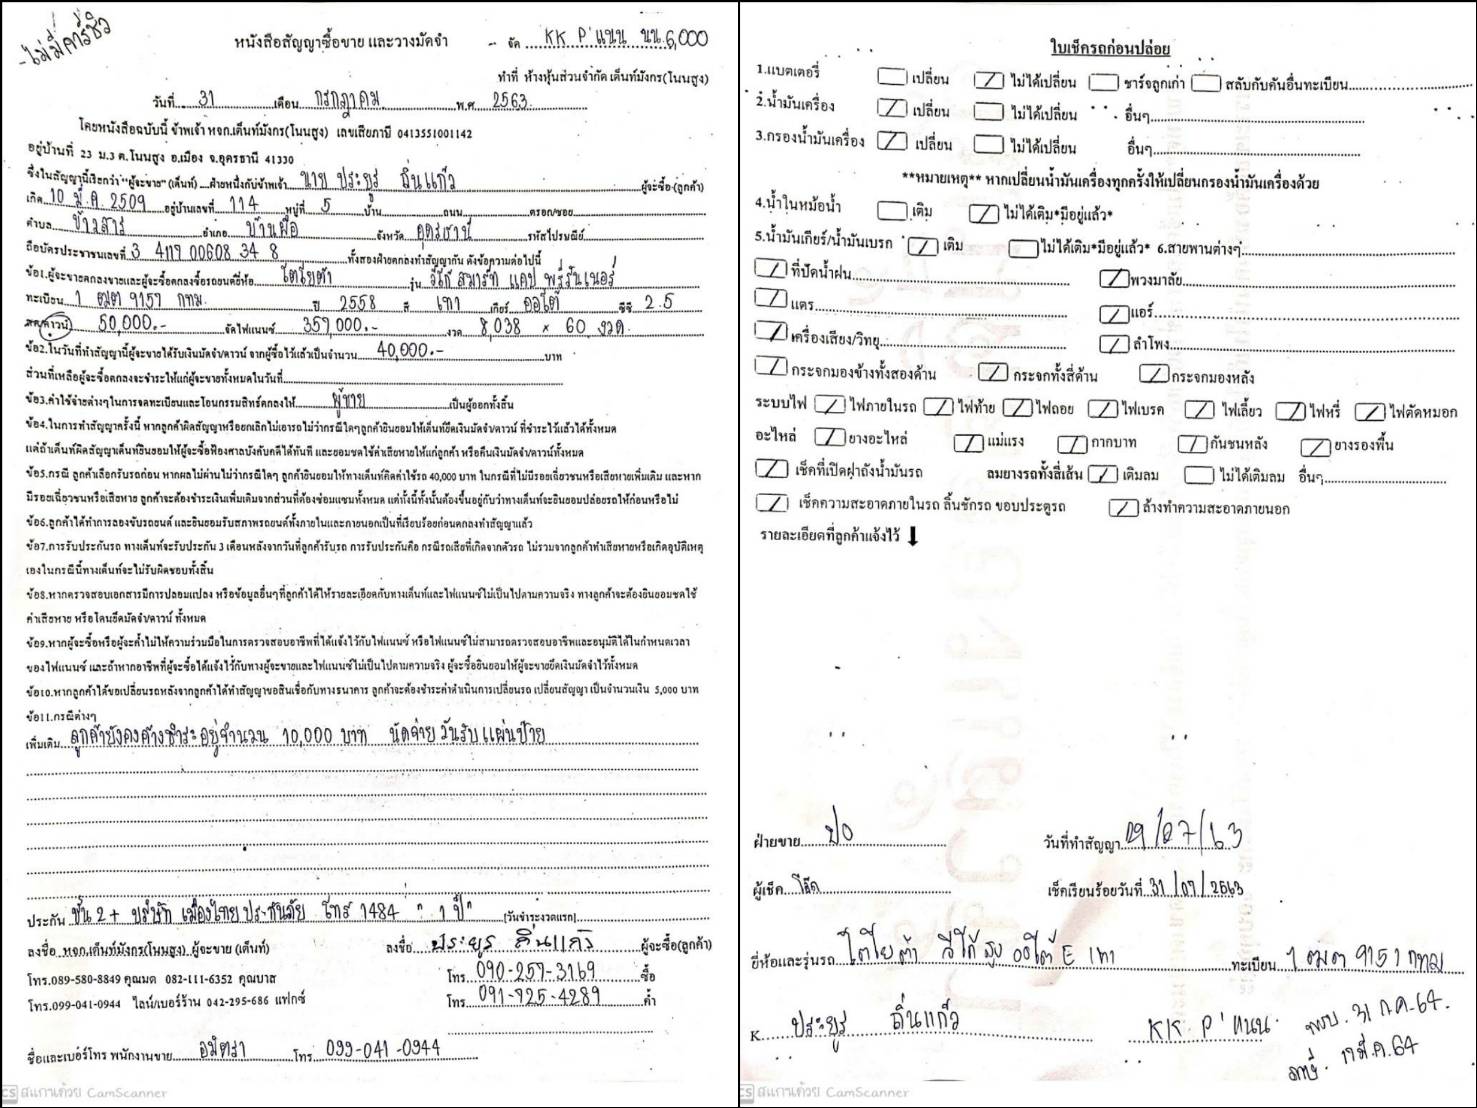 - ไม่มีคาร์ซิว
หนังสือสัญญาซื้อขาย และวางมัดจำ - จัด KK P'แนน นน.6,000
ทำที่ ห้างหุ้นส่วนจำกัด เต็นท์มังกร(โนนสูง)
วันที่ 31 เดือน กรกฎาคม พ.ศ. 2563
โดยหนังสือฉบับนี้ ข้าพเจ้า หจก.เต็นท์มังกร(โนนสูง) เลขเสียภาษี 0413551001142
อยู่บ้านที่ 23 ม.3 ต.โนนสูง อ.เมือง จ.อุดรธานี 41330
ซึ่งในสัญญานี้เรียกว่า "ผู้จะขาย" (เต็นท์) ฝ่ายหนึ่งกับข้าพเจ้า นาย ประยูร ถิ่นแก้ว ผู้จะซื้อ (ลูกค้า)
เกิด 10 มี.ค. 2509 อยู่บ้านเลขที่ 114 หมู่ที่ 5 บ้าน ถนน ตรอก/ซอย
ตำบล ข้าวสาร อำเภอ บ้านผือ จังหวัด อุดรธานี รหัสไปรษณีย์
ถือบัตรประชาชนเลขที่ 3 4117 00608 34 8 ทั้งสองฝ่ายตกลงทำสัญญากัน ดังข้อความต่อไปนี้
ข้อ1.ผู้จะขายตกลงขายและผู้จะซื้อตกลงซื้อรถยนต์ยี่ห้อ โตโยต้า รุ่น วีโก้ สมาร์ท แคป พรีรันเนอร์
ทะเบียน 1 ฒฒ 9151 กทม. ปี 2558 สี เทา เกียร์ ออโต้ ซีซี 2.5
สด/ดาวน์ 50,000.- จัดไฟแนนซ์ 359,000.- งวด 8,038 × 60 งวด.
ข้อ2.ในวันที่ทำสัญญานี้ผู้จะขายได้รับเงินมัดจำ/ดาวน์ จากผู้ซื้อไว้แล้วเป็นจำนวน 40,000.- บาท
ส่วนที่เหลือผู้จะซื้อตกลงจะชำระให้แก่ผู้จะขายทั้งหมดในวันที่
ข้อ3.ค่าใช้จ่ายต่างๆในการจดทะเบียนและโอนกรรมสิทธิ์ตกลงให้ ผู้ขาย เป็นผู้ออกทั้งสิ้น
ข้อ4.ในการทำสัญญาครั้งนี้ หากลูกค้าผิดสัญญาหรือยกเลิกไม่เอารถไม่ว่ากรณีใดๆลูกค้ายินยอมให้เต็นท์ยึดเงินมัดจำ/ดาวน์ ที่ชำระไว้แล้วได้ทั้งหมด
แต่ถ้าเต็นท์ผิดสัญญาเต็นท์ยินยอมให้ผู้จะซื้อฟ้องศาลบังคับคดีได้ทันที และยอมชดใช้ค่าเสียหายให้แก่ลูกค้า หรือคืนเงินมัดจำ/ดาวน์ทั้งหมด
ข้อ5.กรณี ลูกค้าเลือกรับรถก่อน หากผลไม่ผ่านไม่ว่ากรณีใดๆ ลูกค้ายินยอมให้ทางเต็นท์คิดค่าใช้รถ 40,000 บาท ในกรณีที่ไม่มีรอยเฉี่ยวชนหรือเสียหายเพิ่มเติม และหาก
มีรอยเฉี่ยวชนหรือเสียหาย ลูกค้าจะต้องชำระเงินเพิ่มเติมจากส่วนที่ต้องซ่อมแซมทั้งหมด แต่ทั้งนี้ทั้งนั้นต้องขึ้นอยู่กับว่าทางเต็นท์จะยินยอมปล่อยรถให้ก่อนหรือไม่
ข้อ6.ลูกค้าได้ทำการลองขับรถยนต์ และยินยอมรับสภาพรถยนต์ทั้งภายในและภายนอกเป็นที่เรียบร้อยก่อนตกลงทำสัญญาแล้ว
ข้อ7.การรับประกันรถ ทางเต็นท์จะรับประกัน 3 เดือนหลังจากวันที่ลูกค้ารับรถ การรับประกันคือ กรณีรถเสียที่เกิดจากตัวรถ ไม่รวมจากลูกค้าทำเสียหายหรือเกิดอุบัติเหตุ
เองในกรณีนี้ทางเต็นท์จะไม่รับผิดชอบทั้งสิ้น
ข้อ8.หากตรวจสอบเอกสารมีการปลอมแปลง หรือข้อมูลอื่นๆที่ลูกค้าได้ให้รายละเอียดกับทางเต็นท์และไฟแนนซ์ไม่เป็นไปตามความจริง ทางลูกค้าจะต้องยินยอมชดใช้
ค่าเสียหาย หรือโดนยึดมัดจำ/ดาวน์ ทั้งหมด
ข้อ9.หากผู้จะซื้อหรือผู้จะค้ำไม่ให้ความร่วมมือในการตรวจสอบอาชีพที่ได้แจ้งไว้กับไฟแนนซ์ หรือไฟแนนซ์ไม่สามารถตรวจสอบอาชีพและอนุมัติได้ในกำหนดเวลา
ของไฟแนนซ์ และถ้าหากอาชีพที่ผู้จะซื้อได้แจ้งไว้กับทางผู้จะขายและไฟแนนซ์ไม่เป็นไปตามความจริง ผู้จะซื้อยินยอมให้ผู้จะขายยึดเงินมัดจำไว้ทั้งหมด
ข้อ10.หากลูกค้าได้ขอเปลี่ยนรถหลังจากลูกค้าได้ทำสัญญาขอสินเชื่อกับทางธนาคาร ลูกค้าจะต้องชำระค่าดำเนินการเปลี่ยนรถ เปลี่ยนสัญญา เป็นจำนวนเงิน 5,000 บาท
ข้อ11.กรณีต่างๆ
เพิ่มเติม ลูกค้ายังคงค้างชำระอยู่จำนวน 10,000 บาท นัดจ่าย วันรับแผ่นป้าย
ประกัน ชั้น 2+ บริษัท เมืองไทยประกันภัย โทร 1484 " 1 ปี" (วันชำระงวดแรก)
ลงชื่อ หจก.เต็นท์มังกร(โนนสูง) ผู้จะขาย (เต็นท์) ลงชื่อ ประยูร ถิ่นแก้ว ผู้จะซื้อ(ลูกค้า)
โทร.089-580-8849 คุณมด 082-111-6352 คุณบาส โทร. 090-259-3169 ซื้อ
โทร.099-041-0944 ไลน์/เบอร์ร้าน 042-295-686 แฟกซ์ โทร. 091-925-4289 ค้ำ
ชื่อและเบอร์โทร พนักงานขาย อมิตรา โทร. 099-041-0944
CS สแกนด้วย CamScanner
ใบเช็ครถก่อนปล่อย
1.แบตเตอรี่ เปลี่ยน ไม่ได้เปลี่ยน ชาร์จลูกเก่า สลับกับคันอื่นทะเบียน
2.น้ำมันเครื่อง เปลี่ยน ไม่ได้เปลี่ยน อื่นๆ
3.กรองน้ำมันเครื่อง เปลี่ยน ไม่ได้เปลี่ยน อื่นๆ
**หมายเหตุ** หากเปลี่ยนน้ำมันเครื่องทุกครั้งให้เปลี่ยนกรองน้ำมันเครื่องด้วย
4.น้ำในหม้อน้ำ เติม ไม่ได้เติม*มีอยู่แล้ว*
5.น้ำมันเกียร์/น้ำมันเบรก เติม ไม่ได้เติม*มีอยู่แล้ว* 6.สายพานต่างๆ
ที่ปัดน้ำฝน พวงมาลัย
แตร แอร์
เครื่องเสียง/วิทยุ ลำโพง
กระจกมองข้างทั้งสองด้าน กระจกทั้งสี่ด้าน กระจกมองหลัง
ระบบไฟ ไฟภายในรถ ไฟท้าย ไฟถอย ไฟเบรค ไฟเลี้ยว ไฟหรี่ ไฟตัดหมอก
อะไหล่ ยางอะไหล่ แม่แรง กากบาท กันชนหลัง ยางรองพื้น
เช็คที่เปิดฝาถังน้ำมันรถ ลมยางรถทั้งสี่เส้น เติมลม ไม่ได้เติมลม อื่นๆ
เช็คความสะอาดภายในรถ ลิ้นชักรถ ขอบประตูรถ ล้างทำความสะอาดภายนอก
รายละเอียดที่ลูกค้าแจ้งไว้ ⬇
ฝ่ายขาย ปอ วันที่ทำสัญญา 29/07/63
ผู้เช็ค เช็คเรียบร้อยวันที่ 31/07/2563
ยี่ห้อและรุ่นรถ โตโยต้า วีโก้ สูง ออโต้ E เทา ทะเบียน 1 ฒฒ 9151 กทม
K ประยูร ถิ่นแก้ว KK P'แนน พรบ. 31 ก.ค. 64.
ภาษี. 19 มี.ค. 64
CS สแกนด้วย CamScanner